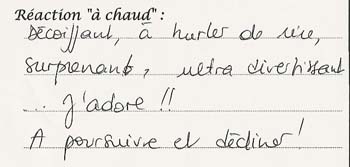 Réaction "à chaud" :
Décoiffant, à hurler de rire,
surprenant, ultra divertissant
... J'adore !!
A poursuivre et décliner !